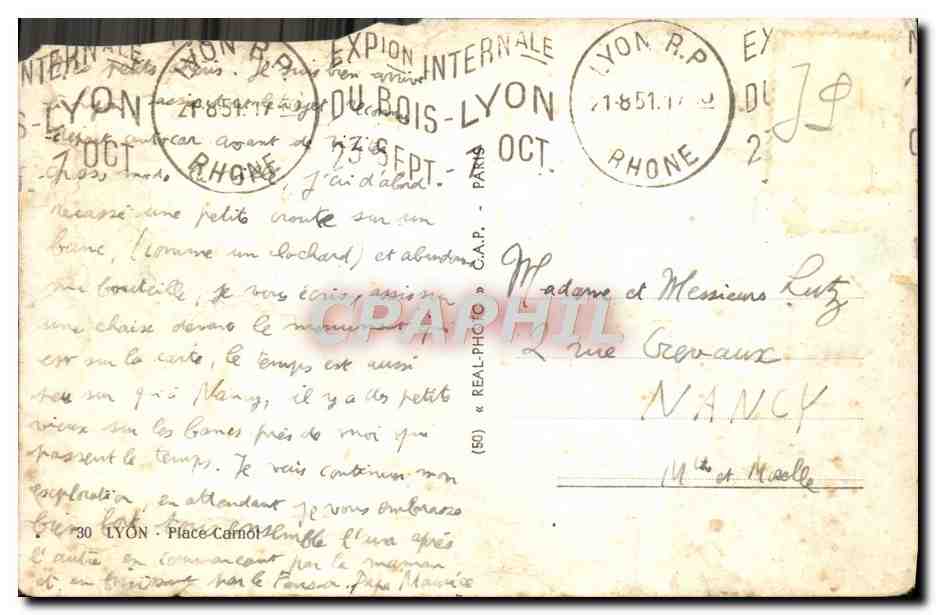 INTERNALE
LYON
7 OCT
LYON R.P.
21-8 51.17
RHONE
EXPION INTERNALE
DU BOIS-LYON
23 SEPT.- OCT.
LYON R.P
21-8 51.17
RHONE
EX
DU
2
petits . Je suis bien arrivé
autocar avant de
, j'ai d'abord
cassé une petite croute sur un
banc, (comme un clochard) et
ma bouteille, je vous écris, assis sur
une chaise devant le monument qui
est sur la carte, le temps est aussi
sur qu'à Nancy, il y a des petits
vieux sur les bancs près de moi qui
passent le temps. Je vais continuer mon
exploration, en attendant je vous embrasse
bien fort tous ensemble l'un après
l'autre, en commençant par la maman
et en finissant par le . Papa Maurice
30 LYON - Place Carnot
(50) « REAL-PHOTO » C.A.P. - PARIS
CPAPHIL
Madame et Messieurs Lutz
2 rue Crevaux
NANCY
Mthe et Moselle